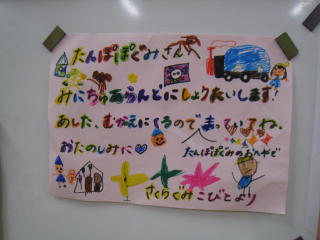 たんぽぽぐみさん
みにちゅあらんどにしょうたいします!
あした、むかえにくるのでまっていてね。
おたのしみに
たんぽぽぐみのおへやで
さくらぐみ こびとより